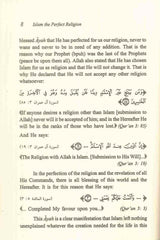 8 Islam the Perfect Religion
blessed Ayah that He has perfected for us our religion, never to
wane and never to be in need of any addition. That is the
reason why our Prophet (pbuh) was the last of the Prophets
(peace be upon them all). Allah also stated that He has chosen
Islam for us as religion and that He will not change it. That is
why He declared that He will not accept any other religion
whatsoever:
﴿If anyone desires a religion other than Islam [submission to
Allah] never will it be accepted of him; and in the Hereafter he
will be in the ranks of those who have lost.﴾ (Qur'an 3: 85)
And He says:
﴿The Religion with Allah is Islam. [Submission to His Will]...﴾
(Qur'an 3: 19)
In the perfection of the religion and the revelation of all
His Commands, there is all blessing of this world and the
Hereafter. It is for this reason that He says:
﴿... Completed My favour upon you...﴾ (Qur'an 5: 3)
This Ayah is a clear manifestation that Islam left nothing
unexplained whatever the creation needed for the life in this